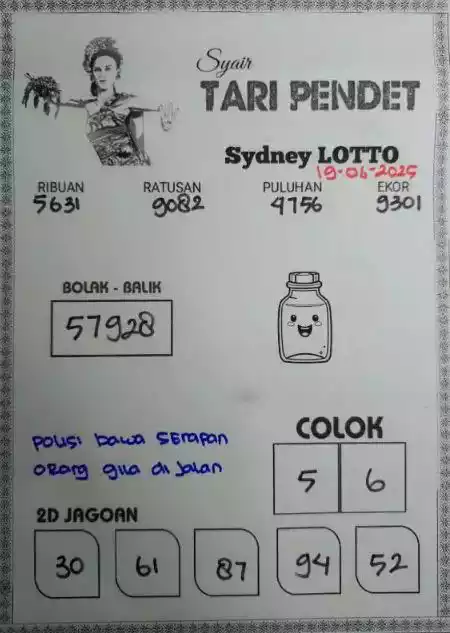 Syair
TARI PENDET
Sydney LOTTO
19-06-2025
RIBUAN RATUSAN PULUHAN EKOR
5631 9082 4756 9301
BOLAK - BALIK
57928
POLISI bawa SErapan
ORang gila di Jalan
COLOK
5 6
2D JAGOAN
30 61 87 94 52